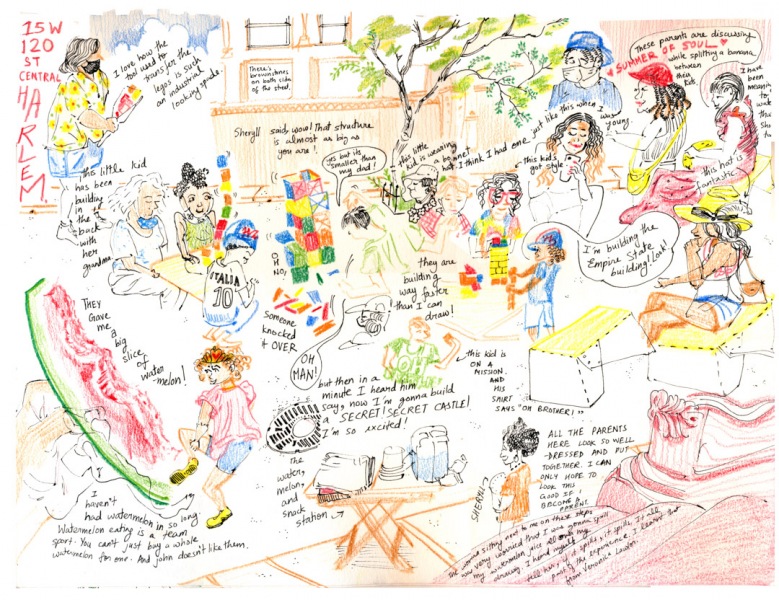 15 W
120
ST
CENTRAL
HARLEM
I love how the
tool used to
transfer the
legos is such
an industrial
looking spade.
There's
brownstones
on both sides
of the street.
These parents are discussing
SUMMER OF SOUL
while splitting a banana
between
their
kids.
I have
been
meaning
to
watch
this
Sheryll said, wow! That structure
is almost as big as
you are!
yes but its
smaller than
my dad!
this little
kid is wearing
a bonnet
hat. I think I had one just like this when I
was
young.
this kid's
got style
this hat is
fantastic.
this little kid
has been
building
in
the
back
with
her
grandma
I'm building the
Empire State
building! Look!
ITALIA
10
OH
NO,
Someone
knocked
it OVER
they are
building
way faster
than I can
draw!
THEY
Gave
me
a
big
slice
of
water
melon!
OH
MAN!
but then in a
minute I heard him
say, now I'm gonna build
a SECRET! SECRET CASTLE!
I'm so excited!
this kid is
ON A
MISSION.
AND
HIS
SHIRT
SAYS "OH BROTHER!"
The
water,
melon,
and
snack
station
SHERYLL
ALL THE PARENTS
HERE LOOK SO WELL
-DRESSED AND PUT
TOGETHER. I CAN
ONLY HOPE TO
LOOK THIS
GOOD IF I
BECOME A
PARENT.
I
haven't
had watermelon in so long.
Watermelon eating is a team
sport. You can't just buy a whole
watermelon for one. And john doesn't like them.
The woman sitting next to me on these steps
was very worried that I was gonna spill
my watermelon juice all over my
drawing. I heard myself
tell her, if it spills, it spills. It's all
part of the experience. I learnt that
from Veronica Lawlor.